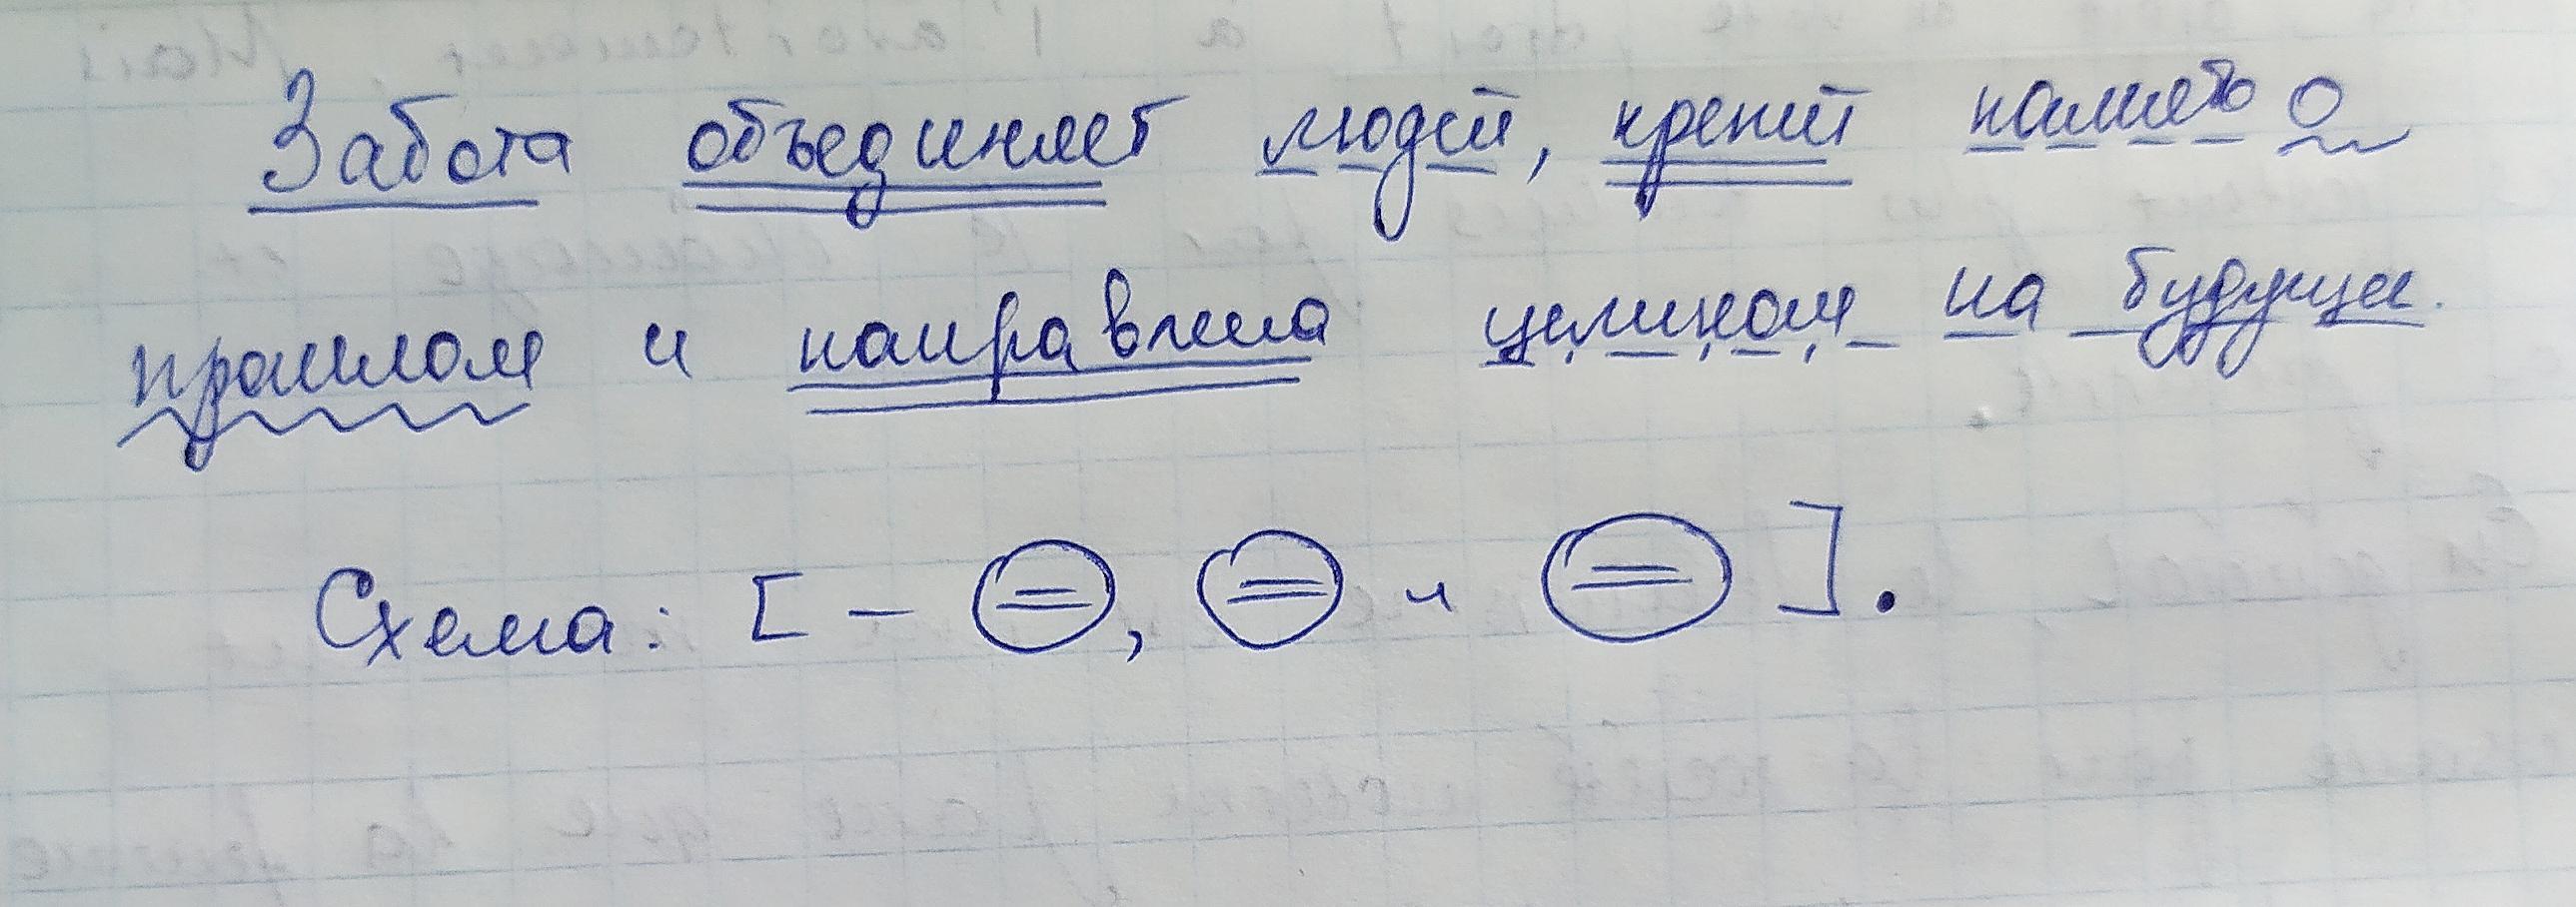 Забота объединяет людей, крепит память о
прошлом и направлена целиком на будущее.
Схема: [ – =, = и = ].